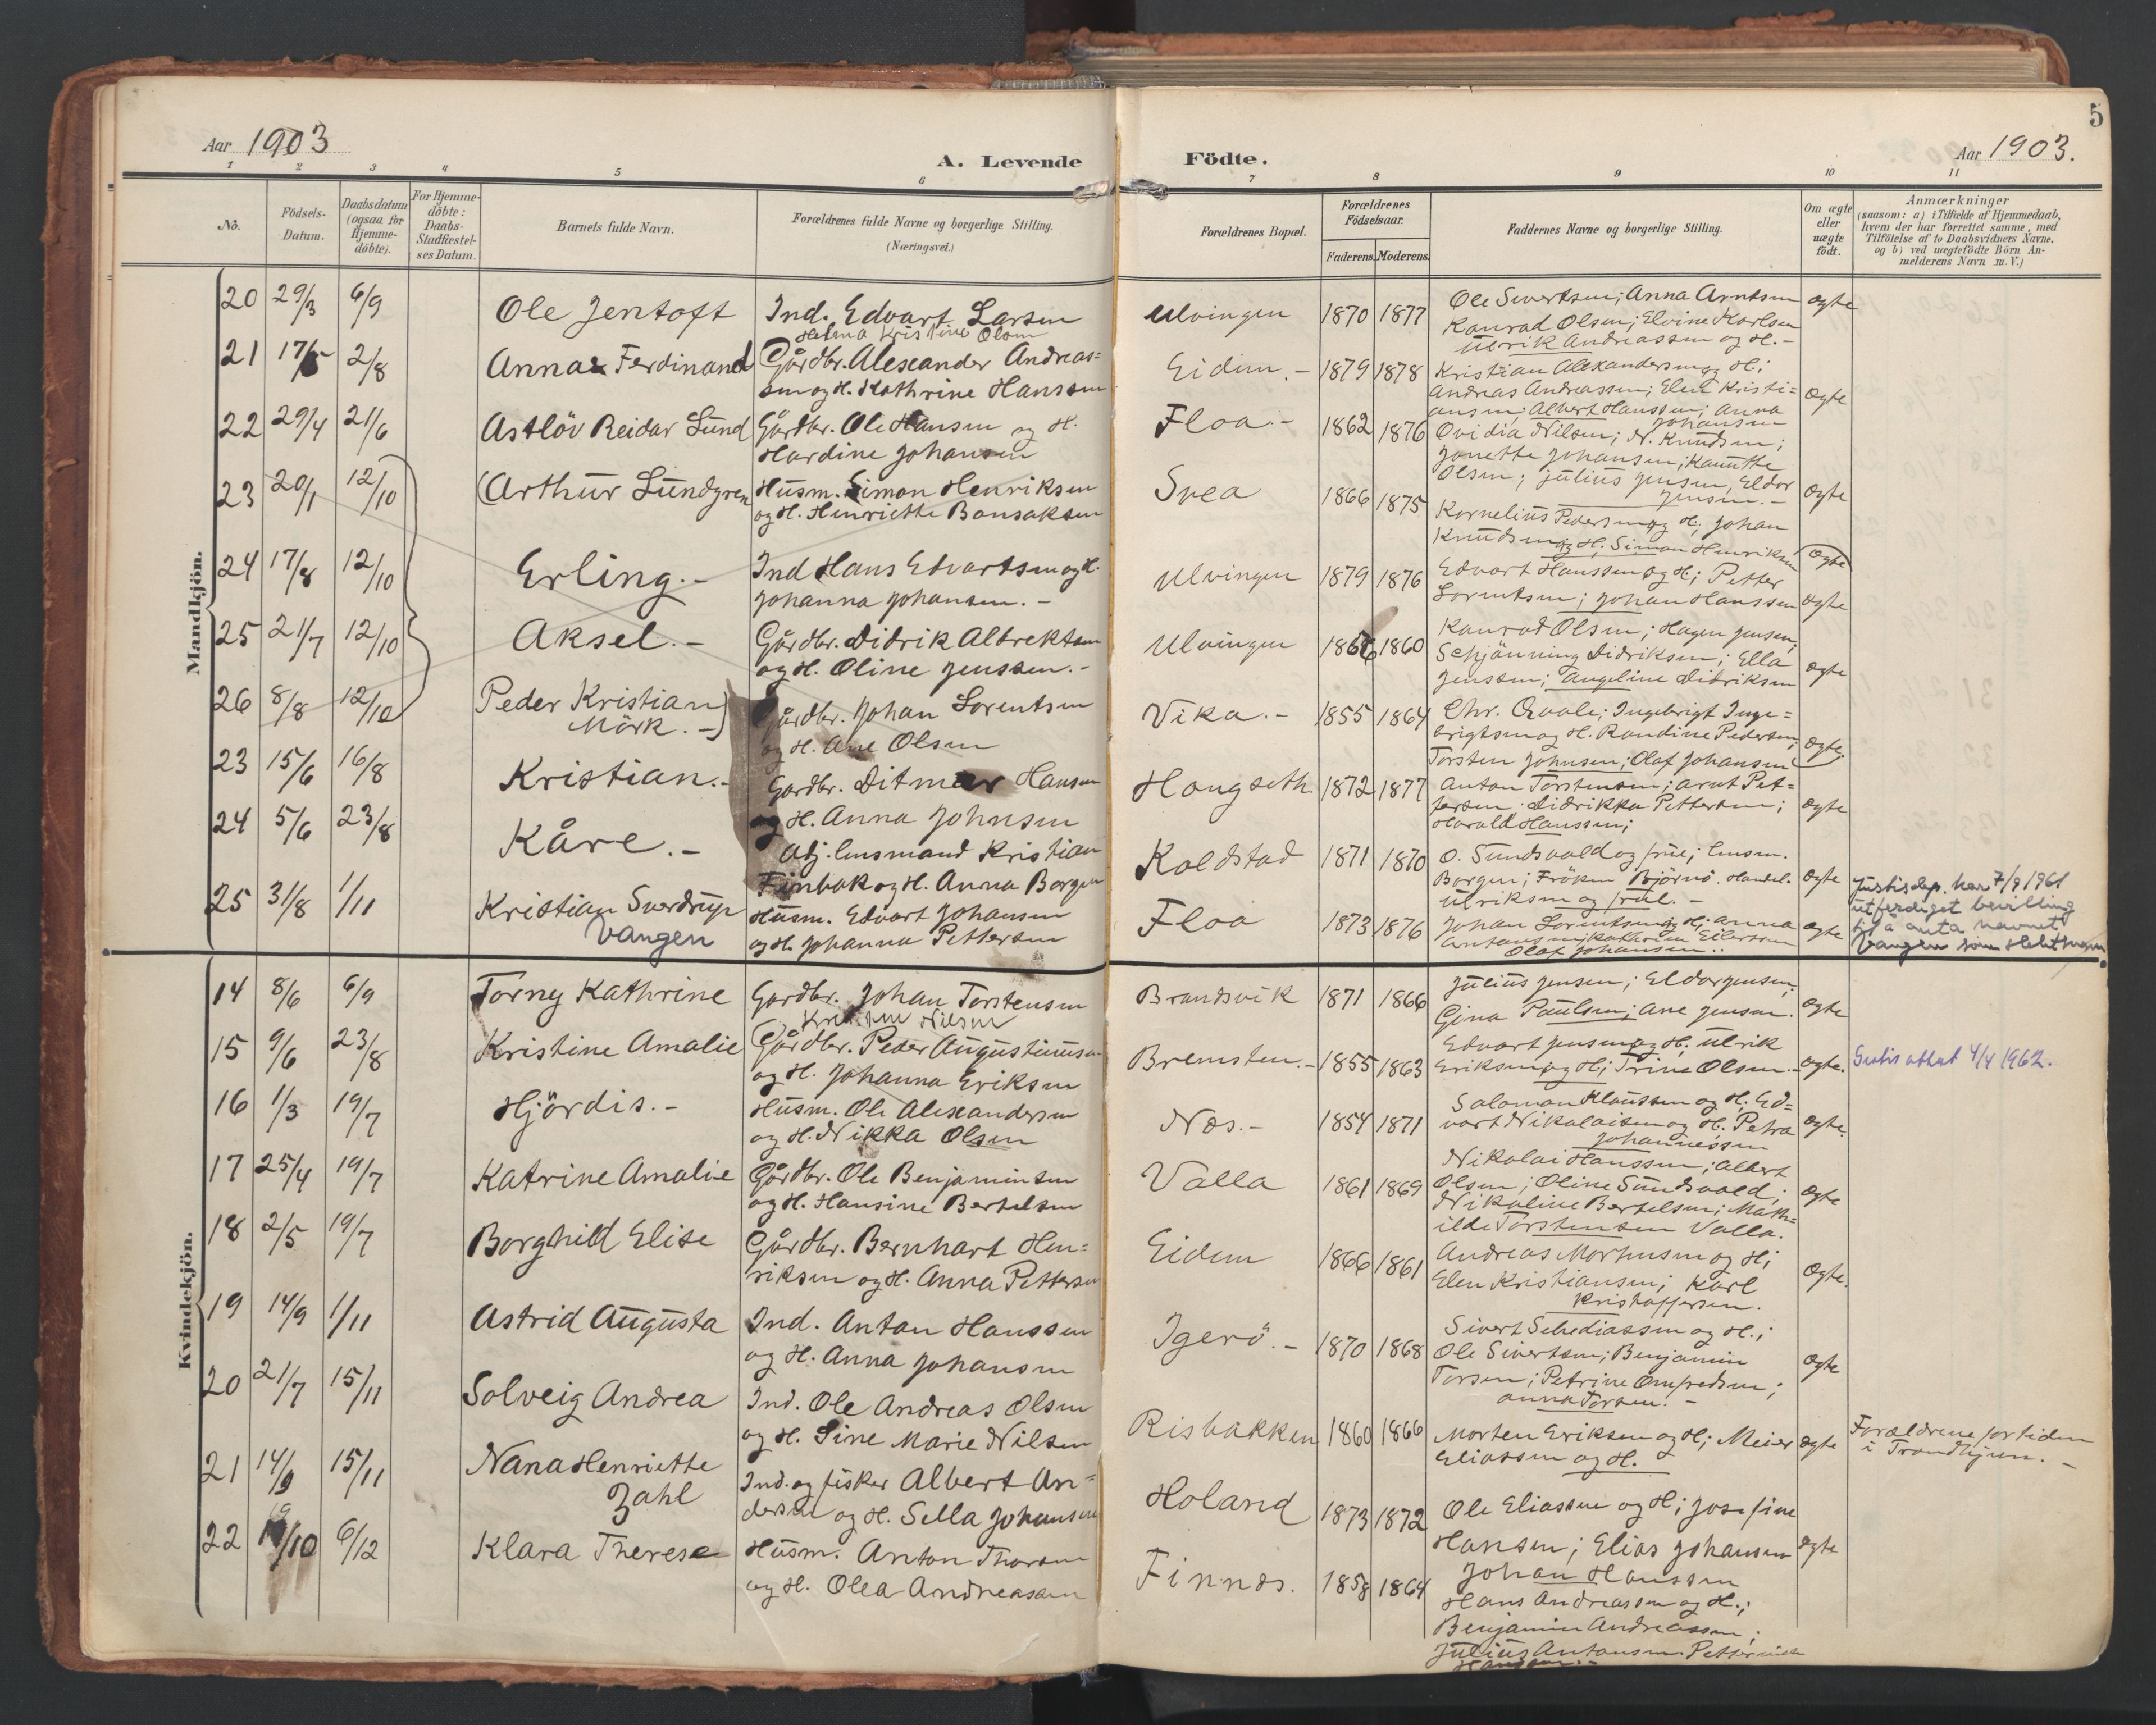 5
Aar 1903
A. Levende Födte.
Aar 1903.
1 2 3 4 5 6 7 8 9 10 11
No.
Födsels-
Datum.
Daabsdatum
(ogsaa for
Hjemme-
döbte).
For Hjemme-
döbte:
Daabs-
Stadfæstel-
ses Datum.
Barnets fulde Navn.
Forældrenes fulde Navne og borgerlige Stilling.
(Næringsvei.)
Forældrenes Bopæl.
Forældrenes
Födselsaar.
Faderens. Moderens.
Faddernes Navne og borgerlige Stilling.
Om ægte
eller
uægte
födt.
Anmærkninger
(saasom: a) i Tilfælde af Hjemmedaab,
hvem der har forrettet samme, med
Tilföielse af to Daabsvidners Navne.
og b) ved uægtefödte Börn An-
melderens Navn m.V.)
Mandkjön.
20 29/3 6/9 Ole Jentoft Ind. Edvart Larsen
Helena Kristine Olsen
Ulvingen 1870 1877 Ole Sivertsen; Anna Arntsen
Konrad Olsen; Elvine Karlsen
Ulrik Andreassen og H. -
ægte
21 17/5 2/8 Annar Ferdinand Gårdbr. Alexander Andreas=
sen og H. Kathrine Hanssen
Eidem. - 1879 1878 Kristian Alexandersen og H;
Andreas Andreassen; Elen Kristi=
ansen; Albert Hanssen; Anna
Johansen
ægte
22 29/4 21/6 Astlöv Reidar Lund Gårdbr. Ole Hansen og H.
Hardine Johansen
Floa - 1862 1876 Ovidia Nilsen; N. Knudsen;
Jonette Johansen; Kanutte
Olsen; Julius Jensen, Eldor
Jensen. -
ægte
23 20/1 12/10 (Arthur Lundgren Husm. Simon Henriksen
og H. Henriette Bonsaksen
Svea 1866 1875 Kornelius Pedersen og H; Johan
Knudsen og H; Simon Henriksen
ægte
24 17/8 12/10 Erling. - Ind Hans Edvartsen og H.
Johanna Johansen. -
Ulvingen 1879 1876 Edvart Hanssen og H; Petter
Lorentsen; Johan Hanssen
ægte
25 21/7 12/10 Aksel. - Gårdbr. Didrik Albrektsen
og H. Oline Jenssen. -
Ulvingen 1860 Konrad Olsen; Hagen Jensen;
Schjönning Didriksen; Ella
Jenssen; Angeline Didriksen
ægte
26 8/8 12/10 Peder Kristian
Mörk. -)
Gårdbr. Johan Lorentsen
og H. Ane Olsen
Vika. - 1855 1864 Chr. Qvale; Ingebrigt Inge=
brigtsen og H. Randine Pedersen;
Torsten Johnsen; Olaf Johansen
ægte
23 15/6 16/8 Kristian. - Gardbr. Ditmar Hansen
og H. Anna Johnsen
Hongseth. 1872 1877 Anton Torstensen; Arnt Pet=
tersen; Didrikka Pettersen;
Harald Hanssen;
ægte
24 5/6 23/8 Kåre. - Adj. lensmand Kristian
Finbak og H. Anna Borgen
Koldstad 1871 1870 O. Sundsvold og frue; lensm.
Borgen; Fröken Björnö. Handel.
Ulriksen og frue. -
ægte
25 31/8 1/11 Kristian Sverdrup
Vangen
Husm. Edvart Johansen
og H. Johanna Pettersen
Floa 1873 1876 Johan Lorentsen og H; Anna
Antonsen; Kathrine Eilertsen
Olaf Johansen ..
ægte
Justisdep. har 7/9 1961
utferdiget bevilling
til å anta navnet
Vangen som slektsnavn
Kvindekjön.
14 8/6 6/9 Torny Kathrine Gardbr. Johan Torstensen
Nilsen
Brandsvik 1871 1866 Julius Jensen; Eldor Jensen;
Gina Paulsen; Ane Jensen.
ægte
15 9/6 23/8 Kristine Amalie Gårdbr. Peder Augustinusen
og H. Johanna Eriksen
Bremsten. - 1855 1863 Edvart Jensen og H; Ulrik
Eriksen og H; Trine Olsen. -
ægte.
attest 4/4 1962.
16 1/3 19/7 Hjördis. - Husm. Ole Alexandersen
og H. Nikka Olsen
Næs. - 1854 1871 Salomon Klaussen og H; Ed=
vart Nikolaisen og H. Petra
Johannessen
ægte.
17 25/4 19/7 Katrine Amalie Gårdbr. Ole Benjaminsen
og H. Hansine Bertelsen
Valla 1861 1869 Nikolai Hanssen; Albert
Olsen; Oline Sundsvold;
Nikoline Bertelsen; Math=
ilde Torstensen Valla.
ægte
18 2/5 19/7 Borghild Elise Gårdbr. Bernhart Hen=
riksen og H. Anna Pettersen
Eidem 1866 1861 Andreas Mortensen og H;
Elen Kristiansen; Karl
Kristoffersen.
ægte.
19 14/9 1/11 Astrid Augusta Ind. Anton Hanssen
og H. Anna Johansen
Igerö. - 1870 1868 Sivert Sebediassen og H.;
Ole Sivertsen; Benjamin
Torsen; Petrine Omfredsen;
Anna Torsen. -
ægte
20 21/7 15/11 Solveig Andrea Ind. Ole Andreas Olsen
og H. Sine Marie Nilsen
Risbakken 1860 1866 Morten Eriksen og H; Meier
Eliassen og H.
ægte
Forældrene for tiden
i Trondhjem. -
21 14/9 15/11 Nana Henriette
Zahl
Ind. og fisker Albert An=
dersen og H. Sella Johansen
Holand 1873 1872 Ole Eliassen og H; Josefine
Hansen; Elias Johansen
Johan Hanssen
ægte
22 19/10 6/12 Klara Therese Husm. Anton Thorsen
og H. Olea Andreassen
Finnæs. 1858 1864 Hans Andreassen og H.;
Benjamin Andreassen;
Julius Antonsen. Petter
Hanssen. -